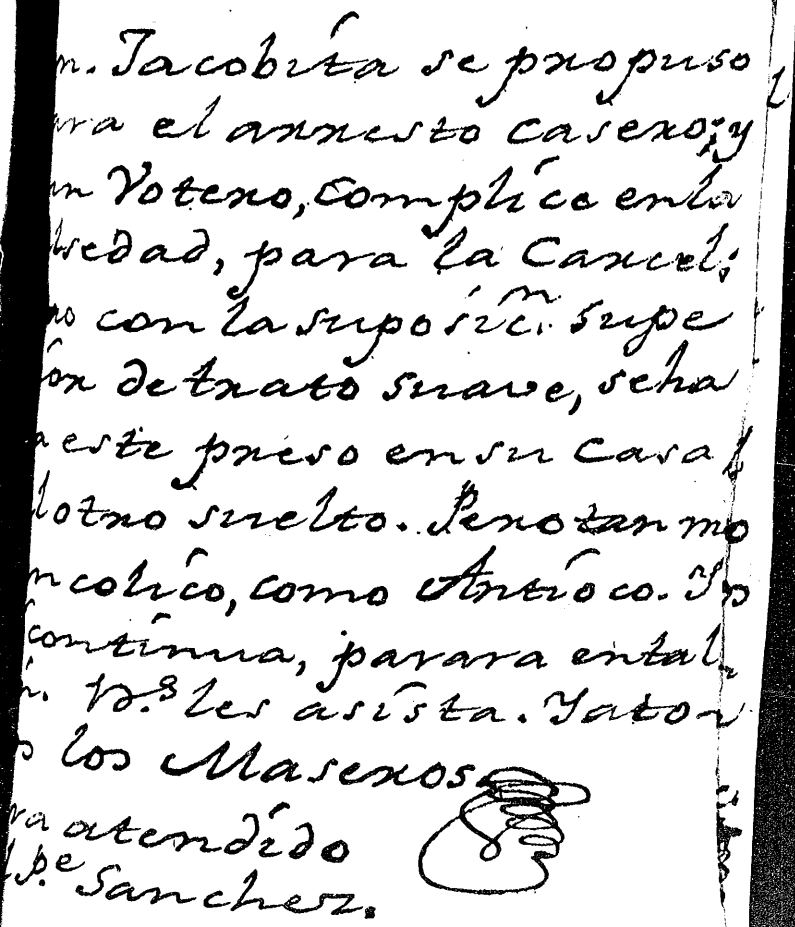 n. Jacobita se propuso
ara el arresto casero; y
un Votero, complice en la
lsedad, para la Carcel;
no con la suposic.n supe
ion de trato suave, seha
a este preso en su Casa
l otro suelto. Pero tan mo
ncolico, como Antioco. Y
continua, parara en tal
D.s les asista. Yaton
s los Maseros
ra atendido
l P.e Sanchez.